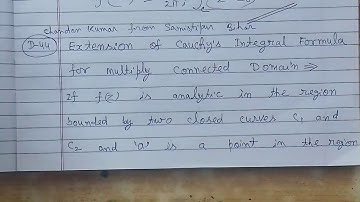 2πi
chandan Kumar from Samastipur Bihar
D-44 Extension of Cauchy's Integral Formula
for multiply connected Domain ⇒
If f(z) is analytic in the region
bounded by two closed curves C₁ and
C₂ and 'a' is a point in the region